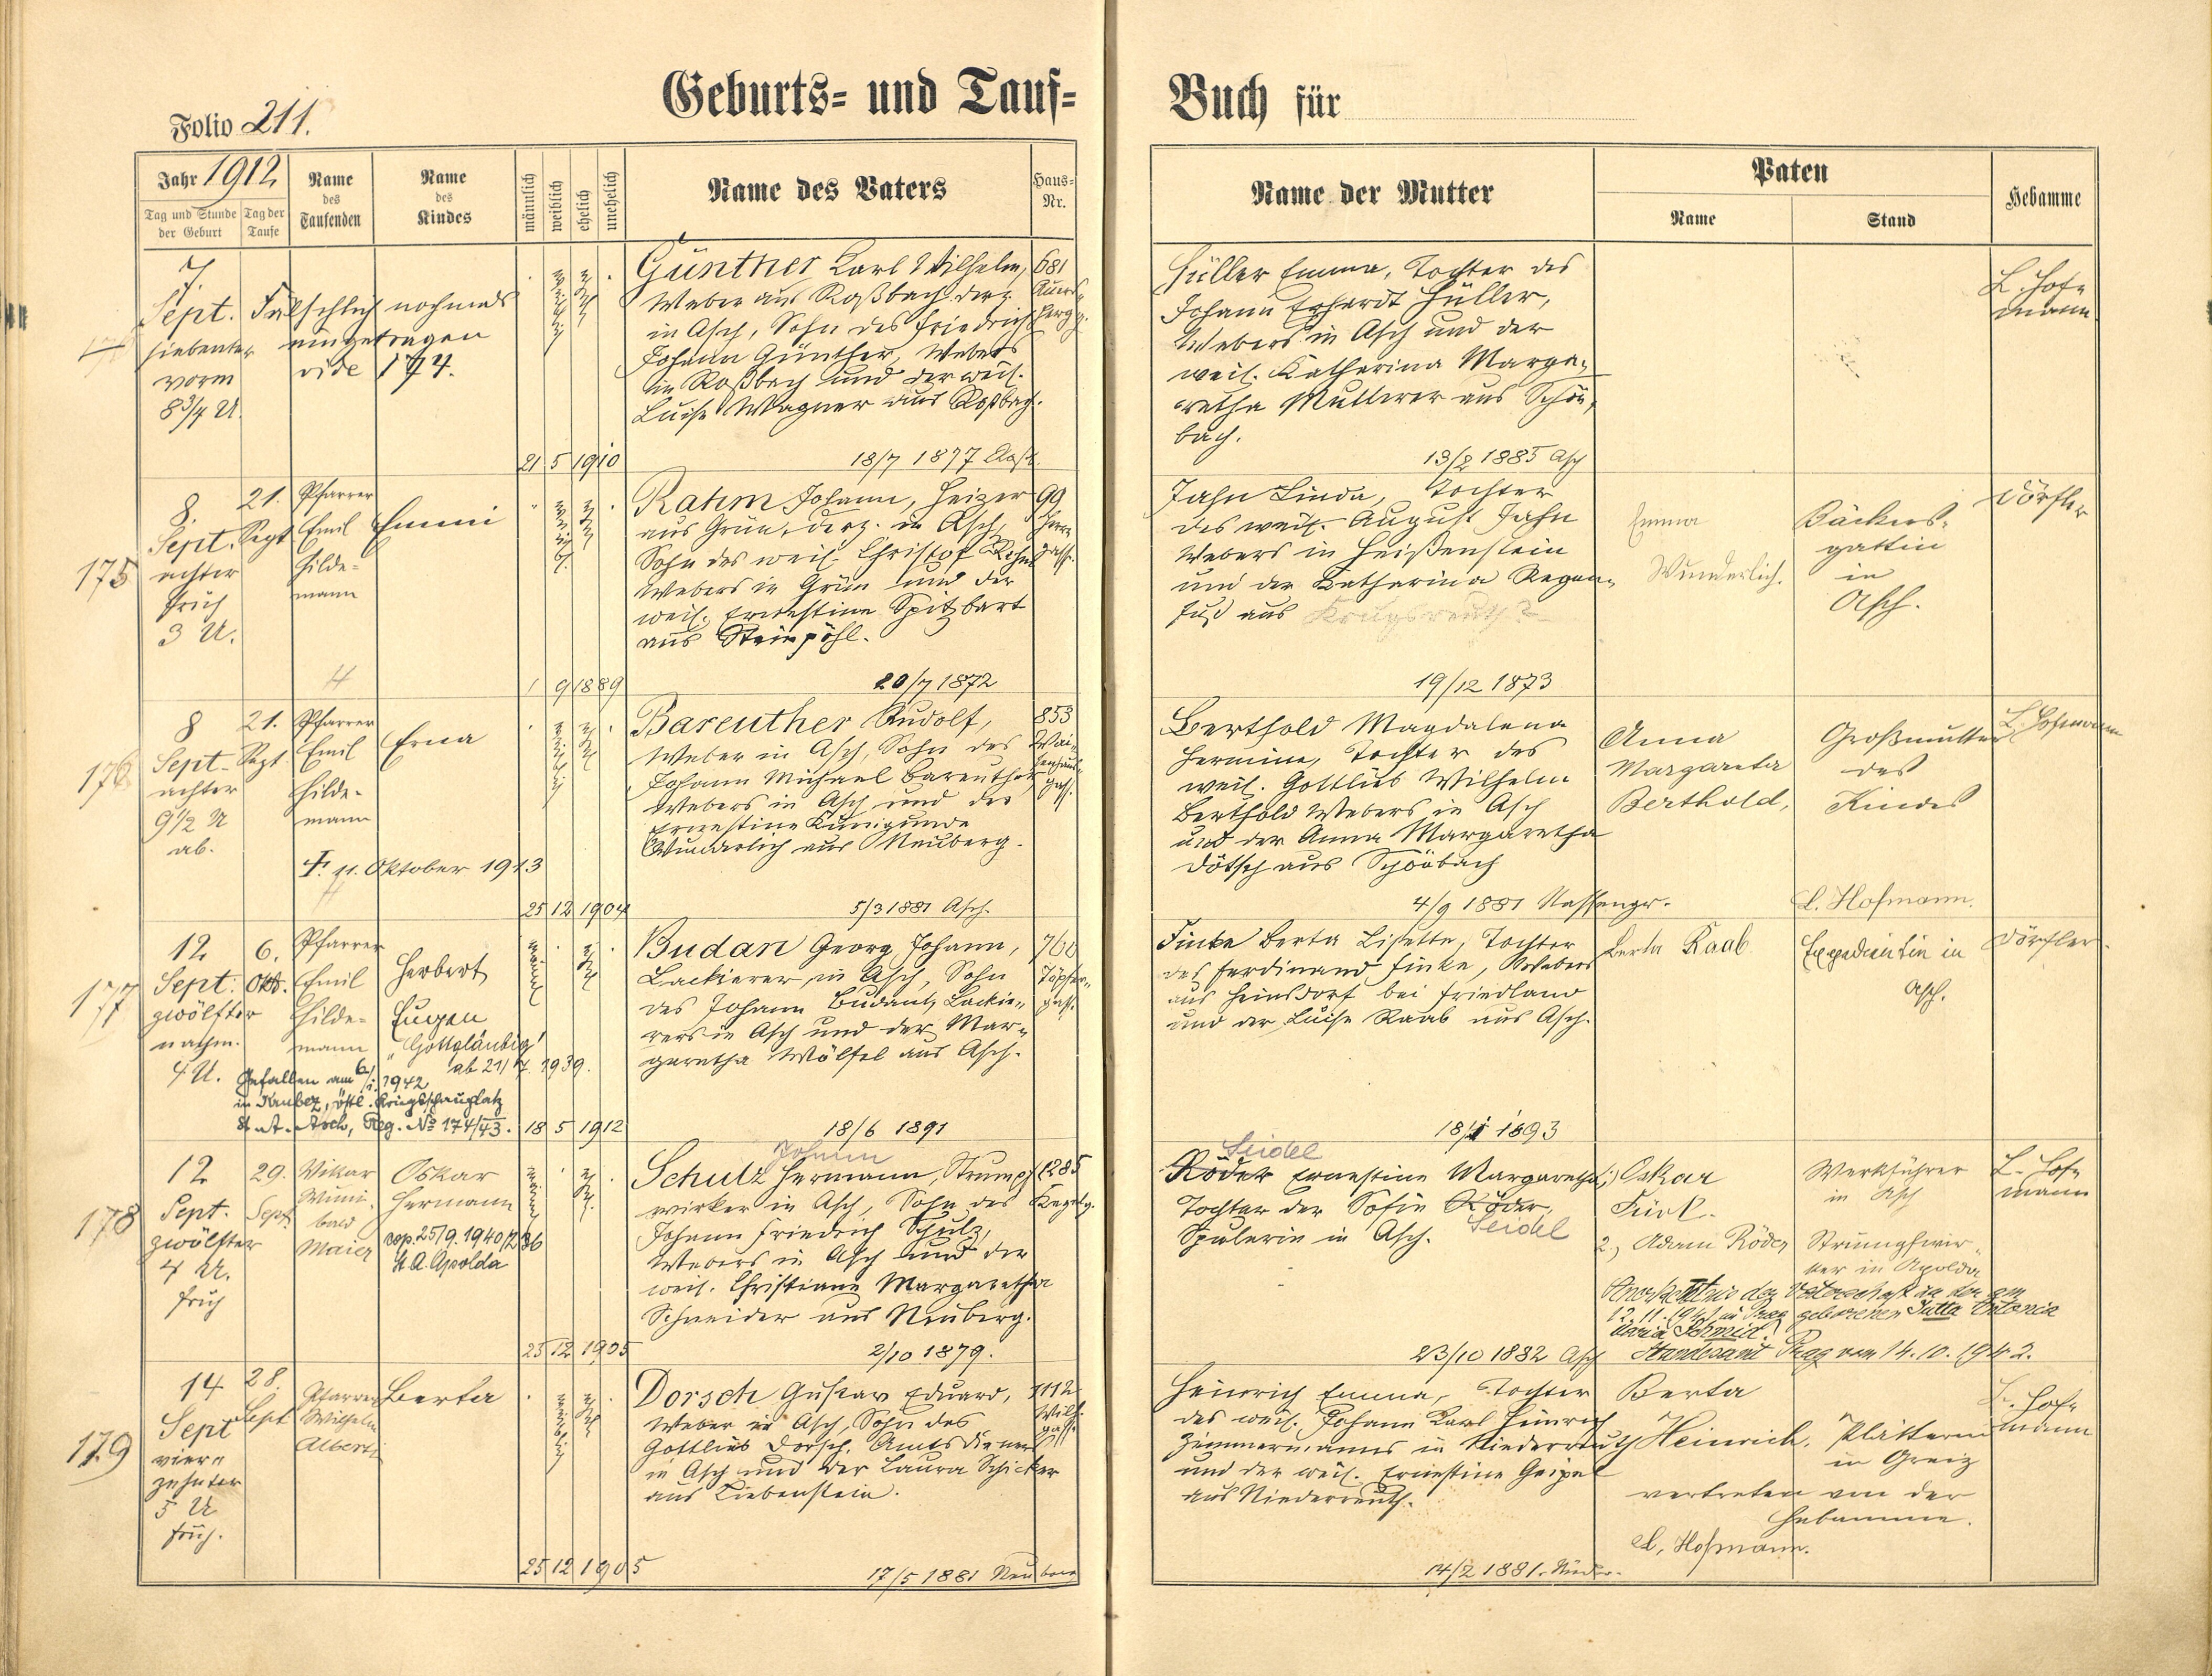 Geburts- und Tauf-
Buch für
Folio 211.
Jahr 1912
Tag und Stunde der Geburt
Tag der Taufe
Name des Taufenden
Name des Kindes
männlich
weiblich
ehelich
unehelich
Name des Vaters
Haus-Nr.
Name der Mutter
Paten
Name
Stand
Hebamme
7.
Sept.
siebenter
vorm
8 3/4 U.
Fälschlich nochmals
eingetragen
vide 174.
Günther Karl Wilhelm,
Weber aus Roßbach derz.
in Asch, Sohn des Friedrich
Johann Günther, Webers
in Roßbach und der weil.
Luise Wagner aus Roßbach.
681
21 5 1910
18/7 1877
Hüller Emma, Tochter des
Johann Erhardt Hüller,
Webers in Asch und der
weil. Katharina Marga-
retha Mutterer aus Schön-
bach.
13/2 1885 Asch
L. Hof-
mann
175
8.
Sept.
achter
früh
3 U.
21.
Sept
Pfarrer
Emil
Hilde-
mann
Emmi
Rahm Johann, Heizer
aus Grün, derz. in Asch,
Sohn des weil. Christof Rahm
Webers in Grün und der
weil. Ernestine Spitzbart
aus Steinpöhl.
99
Herrn
gasse.
1 9 1889
20/7 1872
Jahn Linda, Tochter
des weil. August Jahn
Webers in Heißenstein
und der Katharina Regen-
fuß aus Krugsreuth?
19/12 1873
Emma
Wunderlich.
Bäckers-
gattin
in
Asch.
Dörfler
176
8
Sept.
achter
9 1/2 U
ab.
21.
Sept.
Pfarrer
Emil
Hilde-
mann
Erna
† 11. Oktober 1913
Bareuther Rudolf,
Weber in Asch, Sohn des
Johann Michael Bareuther,
Webers in Asch und der
Ernestine Kunigunde
Wunderlich aus Neuberg.
853
Wai-
senhaus-
gass.
25 12 1904
5/3 1881 Asch.
Berthold Magdalena
Hermine, Tochter des
weil. Gottlieb Wilhelm
Berthold Webers in Asch
und der Anna Margaretha
Dötsch aus Schönbach
4/9 1881 Nassengr.
Anna
Margareta
Berthold,
Großmutter
des
Kindes
L. Hofmann.
L. Hofmann
177
12
Sept.
zwölfter
nachm.
4 U.
6.
Okt.
Pfarrer
Emil
Hilde-
mann
Herbert
Eugen
"Gottgläubig"
ab 21/7. 1939.
Gefallen am 6/1. 1942
östl. Kriegsschauplatz
St. A. Asch, Reg. No 174/43.
Budan Georg Johann,
Lackierer in Asch, Sohn
des Johann Budan, Lackie-
rers in Asch und der Mar-
garetha Wölfel aus Asch.
760
Töpfer-
gass.
18 5 1912
18/6 1891
Finke Berta Lisette, Tochter
des Ferdinand Finke, Webers
aus Heinsdorf bei Friedland
und der Luise Raab aus Asch.
1893
Berta Raab
Expedientin in
Asch.
Dörfler.
178
12
Sept.
zwölfter
4 U.
früh
29.
Sept.
Vikar
Wuni-
bald
Maier
Oskar
Hermann
cop. 25/9. 1940
St. A. Apolda
Johann
Schulz Hermann, Strumpf
wirker in Asch, Sohn des
Johann Friedrich Schulz,
Webers in Asch und der
weil. Christiane Margaretha
Schneider aus Neuberg.
1285
Kegelg.
25 12 1905
2/10 1879.
Seidel
Röder Ernestine Margaretha,
Tochter der Sofie Röder,
Seidel
Spulerin in Asch.
23/10 1882 Asch
Oskar
Türk.
Werkführer
in Asch
2., Adam Röder
Strumpfwir-
ker in Apolda
Anerkenntnis der Vaterschaft zu der am
12. 11. 1941 in Prag geborenen Jutta
Maria Schmid.
Standesamt Prag vom 14. 10. 1942.
L. Hof-
mann
179
14
Sept
vier-
zehnter
5 U
früh.
28.
Sept
Pfarrer
Wilhelm
Alberti
Berta
Dorsch Gustav Eduard,
Weber in Asch, Sohn des
Gottlieb Dorsch, Amtsdieners
in Asch und der Laura Schicker
aus Liebenstein.
1112
25 12 1905
17/5 1881 Neuberg
Heinrich Emma, Tochter
des weil. Johann Karl Heinrich
Zimmermanns in Niederreuth
und der weil. Ernestine Geipel
aus Niederreuth.
14/2 1881. Nieder.
Berta
Heinrich.
Plätterin
in Greiz
vertreten von der
Hebamme.
L. Hofmann.
L. Hof-
mann